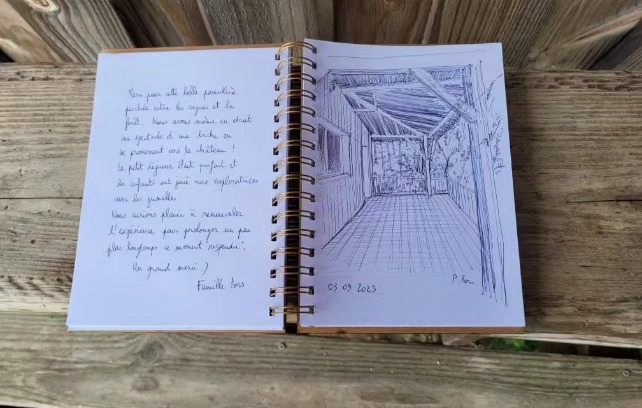 Merci pour cette belle parenthèse
perchée entre les vignes et la
forêt. Nous avons même eu droit
au spectacle d'une biche en
se promenant vers le château !
Le petit déjeuner était parfait et
les enfants ont joué aux exploratrices
avec les jumelles.
Nous aurions plaisir à renouveler
l'expérience pour prolonger un peu
plus longtemps ce moment "suspendu".
Un grand merci :)
Famille
03 09 2023